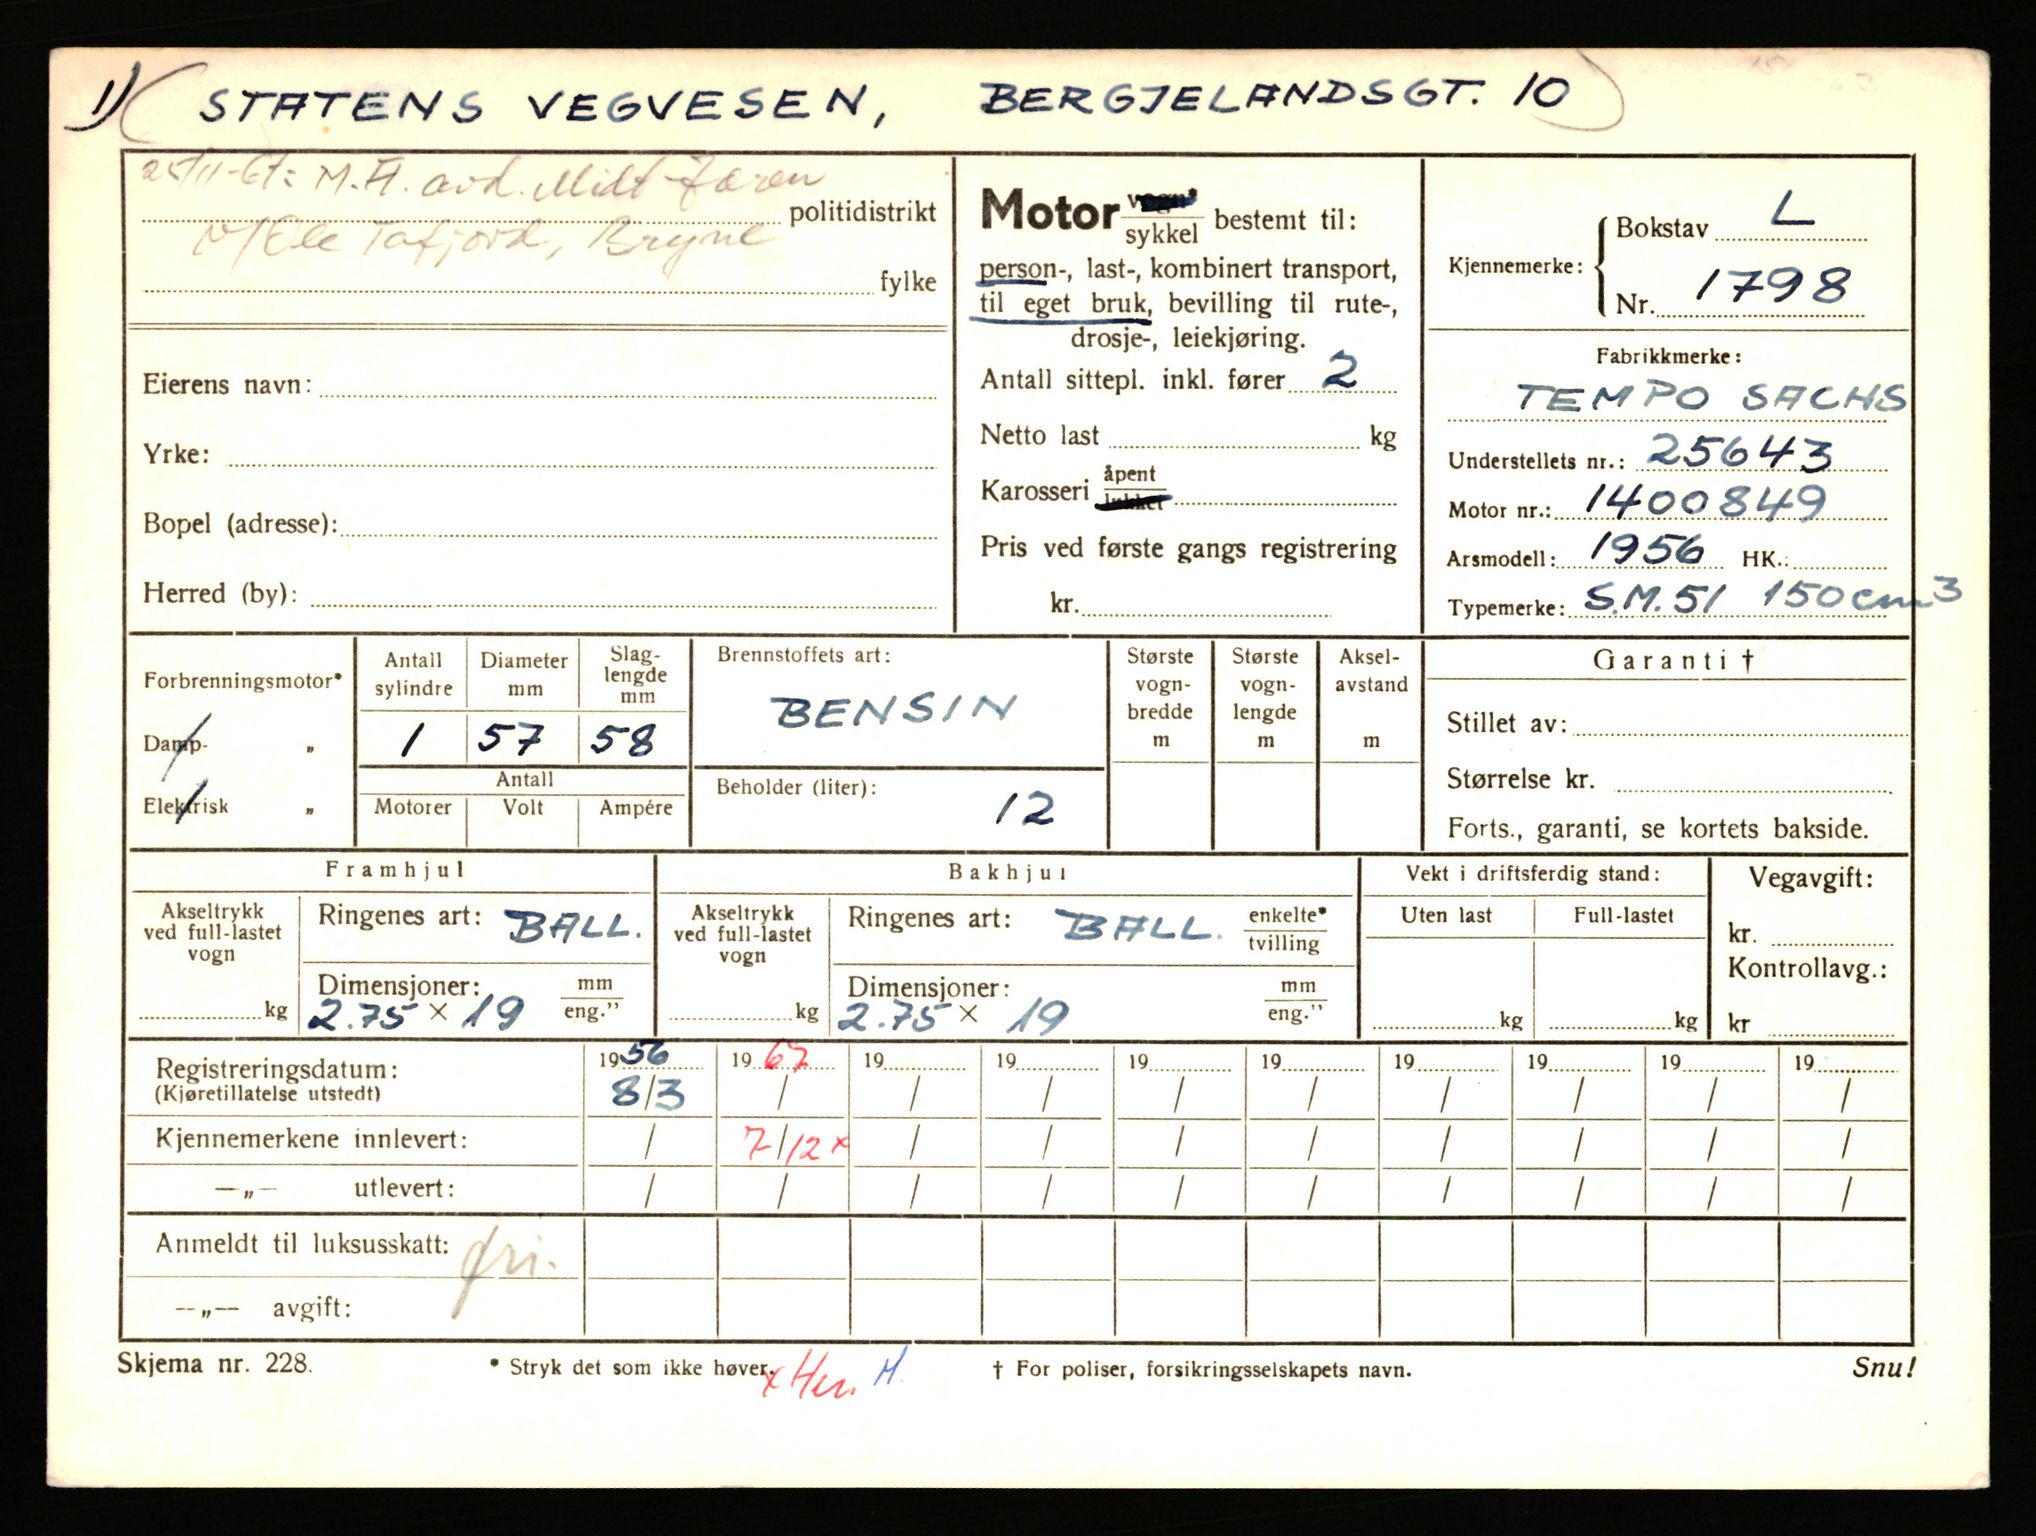 1) (STATENS VEGVESEN, BERGJELANDSGT. 10)
25/11-67: M.A. avd. Midt-Jæren
politidistrikt
v/Ole Tafjord, Bryne
fylke
Eierens navn:
Yrke:
Bopel (adresse):
Herred (by):
Motor vogn* sykkel bestemt til:
person-, last-, kombinert transport,
til eget bruk, bevilling til rute-,
drosje-, leiekjøring.
Antall sittepl. inkl. fører 2
Netto last kg
Karosseri åpent lukket
Pris ved første gangs registrering
kr.
Kjennemerke: Bokstav L
Nr. 1798
Fabrikkmerke:
TEMPO SACHS
Understellets nr.: 25643
Motor nr.: 1400849
Arsmodell: 1956 HK.:
Typemerke: S.M.51 150cm3
Forbrenningsmotor*
Damp- "
Elektrisk "
Antall sylindre 1
Diameter mm 57
Slaglengde mm 58
Antall
Motorer Volt Ampére
Brennstoffets art:
BENSIN
Beholder (liter):
12
Største vognbredde m
Største vognlengde m
Akselavstand m
Garanti †
Stillet av:
Størrelse kr.
Forts., garanti, se kortets bakside.
Framhjul
Akseltrykk ved full-lastet vogn
kg
Ringenes art: BALL.
Dimensjoner: mm eng."
2.75 × 19
Bakhjul
Akseltrykk ved full-lastet vogn
kg
Ringenes art: BALL. enkelte* tvilling
Dimensjoner: mm eng."
2.75 × 19
Vekt i driftsferdig stand:
Uten last Full-lastet
kg kg
Vegavgift:
kr.
Kontrollavg.:
kr
Registreringsdatum: 1956 1967 19 19 19 19 19 19 19 19
(Kjøretillatelse utstedt) 8/3 / / / / / / / / /
Kjennemerkene innlevert: / 7/12 x / / / / / / / /
—„— utlevert: / / / / / / / / / /
Anmeldt til luksusskatt: fri.
—„— avgift:
Skjema nr. 228.
* Stryk det som ikke høver.
x Her. H.
† For poliser, forsikringsselskapets navn.
Snu!